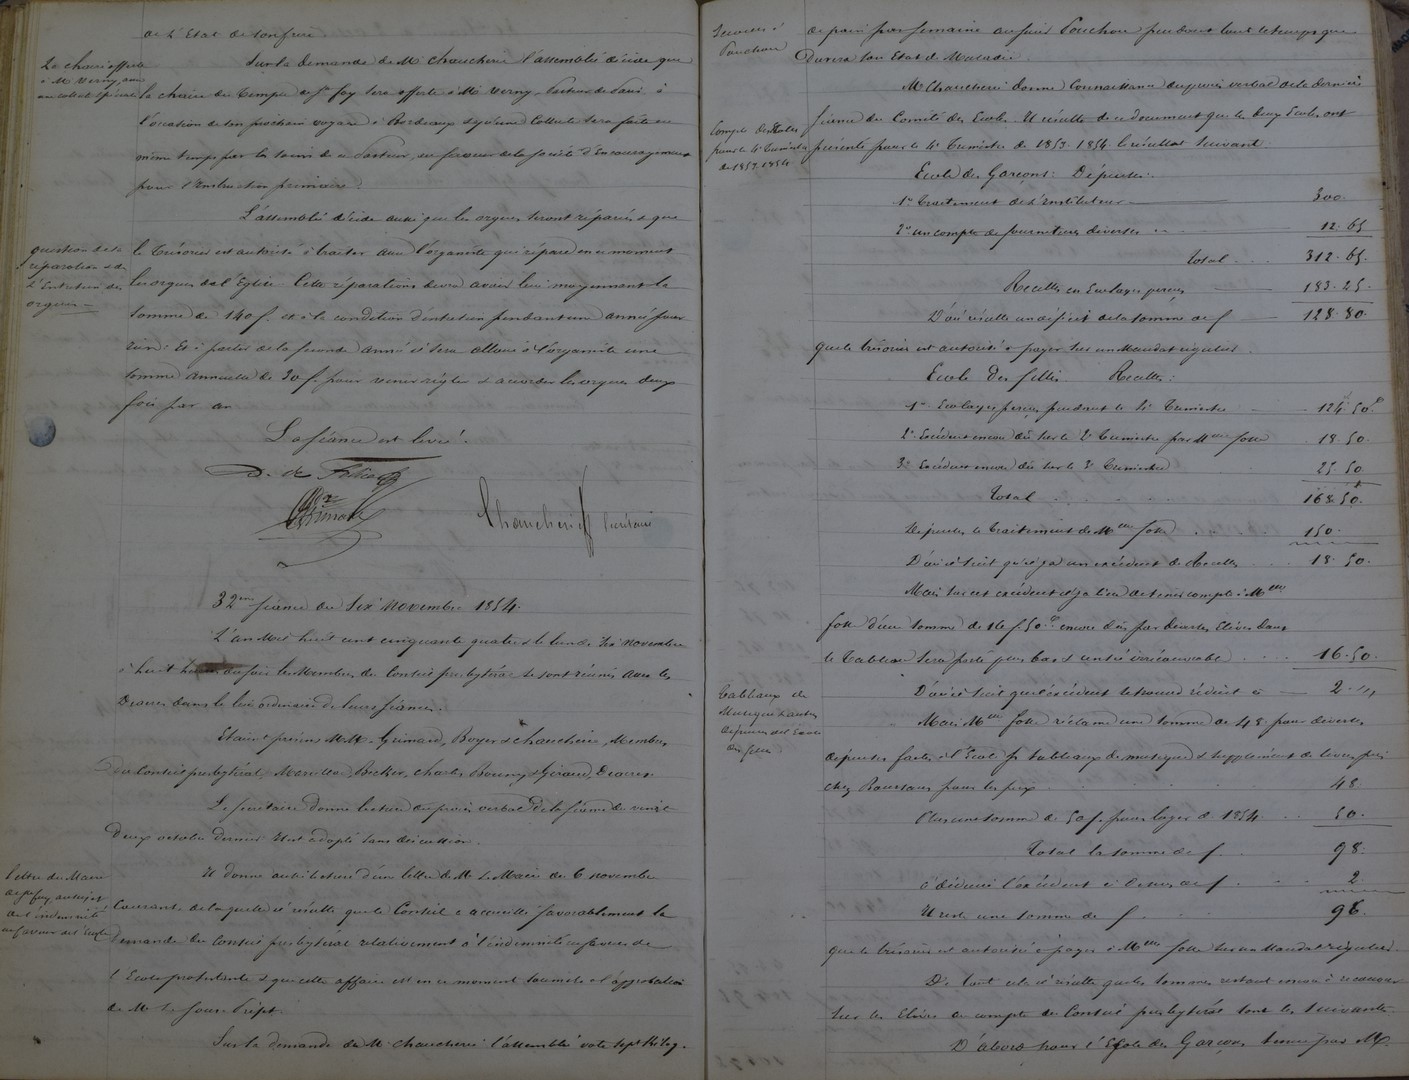 de l'Etat de son frère
La chaire offerte
à M. Verny, avec
une collecte spéciale
Sur la demande de M. Chaucherie l'assemblée décide que
la chaire du Temple de Ste foy sera offerte à M. Verny, Pasteur de Paris à
l'occasion de son prochain voyage à Bordeaux & qu'une Collecte sera faite en
même temps par les soins de ce Pasteur, en faveur de la Société d'Encouragement
pour l'Instruction primaire.
L'assemblée décide aussi que les orgues seront réparées & que
question de la
réparation & de
l'Entretien des
orgues
le Trésorier est autorisé à traiter avec l'organiste qui répare en ce moment
les orgues de l'Eglise. Cette réparation devra avoir lieu moyennant la
somme de 140 f. et à la condition d'entretien pendant une année pour
rien: Et à partir de la seconde année il sera alloué à l'organiste une
somme annuelle de 30 f. pour venir régler & accorder les orgues deux
fois par an
La séance est levée.
Chaucherie Secrétaire
32eme séance du Six Novembre 1854.
L'an Mil huit cent cinquante quatre & le lundi Six novembre
à huit heures du soir les Membres du Conseil presbytéral se sont réunis avec les
Diacres dans le lieu ordinaire de leurs séances.
Etaient présents M.M. Grimard, Boyer & Chaucherie, Membres
du Conseil presbytéral, Becker, Charles & Giraud, Diacres
Le Secrétaire donne lecture du procès verbal de la séance du vingt
Deux octobre dernier. Il est adopté sans discussion.
lettre du Maire
de Ste foy, au sujet
de l'indemnité
en faveur de l'Ecole
Il donne aussi lecture d'une lettre de M. le Maire du 6 novembre
Courant, de laquelle il résulte que le Conseil a accueilli favorablement la
demande du Conseil presbytéral relativement à l'indemnité en faveur de
l'Ecole protestante & que cette affaire est en ce moment soumise à l'approbation
de M. le Sous-Préfet.
Sur la demande de M. Chaucherie l'assemblée vote sept Kilog.
Secours à
Pouchou
de pain par semaine au sieur Pouchou pendant tout le temps que
Durera son Etat de Maladie.
M. Chaucherie donne Connaissance du procès verbal de la dernière
Compte des Ecoles
pour le 4e Trimestre
de 1853-1854
séance du Comité des Ecoles. Il résulte de ce document que les deux Ecoles ont
présenté pour le 4e Trimestre de 1853-1854 le résultat suivant
Ecole des Garçons: Dépenses:
1° Traitement de l'Instituteur 300.
2° un compte de fournitures diverses 12.65
Total 312.65.
Recettes en Ecolages perçus 183.25.
D'où résulte un déficit de la somme de f 128.80.
que le trésorier est autorisé à payer sur un Mandat régulier.
Ecole des filles. Recettes:
1° Ecolages perçus pendant le 4e Trimestre 124.50
2° Excédent encore dû sur le 2e Trimestre par Melle 18.50.
3° Excédent encore dû sur le 3e Trimestre 25.50
Total 168.50.
Dépenses, le Traitement de Melle 150.
D'où il suit qu'il y a un excédent de Recettes 18.50.
Mais sur cet excédent il y a lieu de tenir compte à Melle
d'une somme de 16 f. 50 c encore dûs par diverses Elèves dont
le Tableau sera porté plus bas & un irrécouvrable 16.50.
Tableaux de
Musique & autres
dépenses de l'Ecole
des filles
D'où il suit que l'excédent se trouve réduit à 2.
Mais Melle réclame une somme de 48 pour diverses
dépenses faites à l'Ecole pr tableaux de musique & supplément de livres pris
chez pour les prix 48.
Plus une somme de 50 f. pour loyer de 1854 50.
Total la somme de f. 98.
à déduire l'excédent ci dessus de f. 2
Il reste une somme de f. 96.
que le trésorier est autorisé à payer à Melle sur un Mandat régulier.
De tout cela il résulte que les sommes restant encore à recouvrer
sur les Elèves au compte du Conseil presbytéral sont les suivantes
D'abord pour l'Ecole des Garçons, tenue par M.